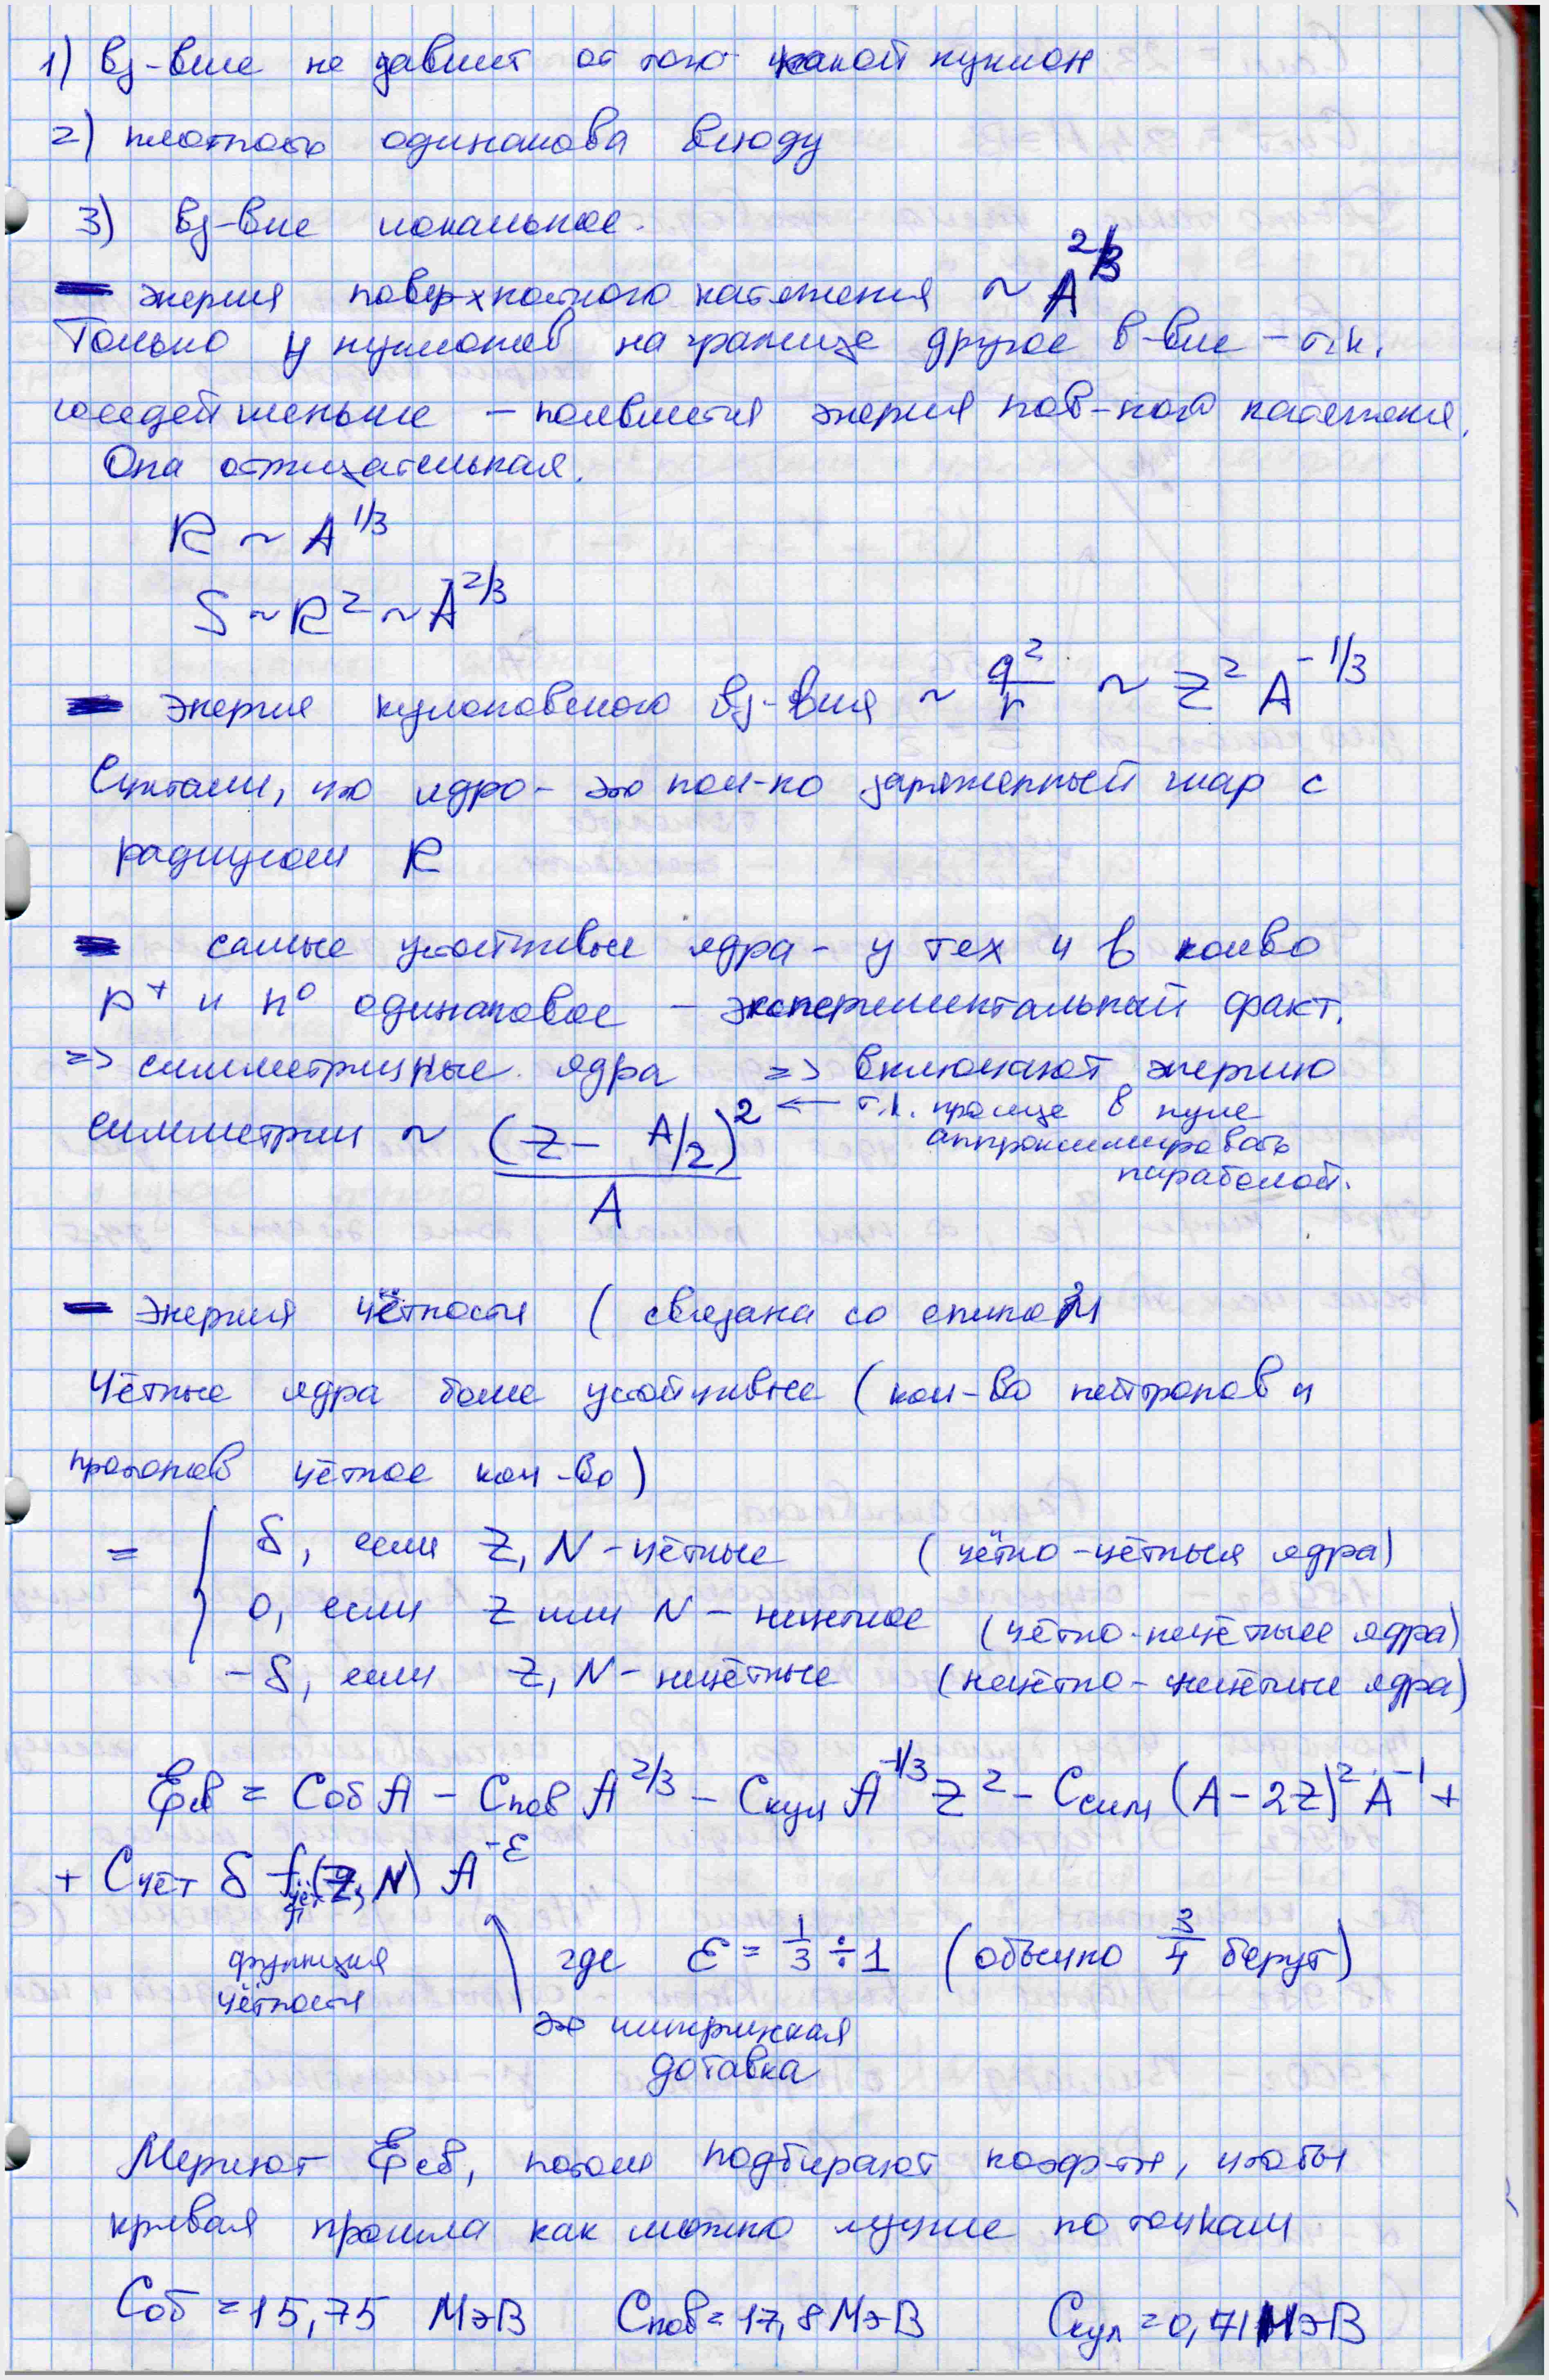 1) вз-вие не зависит от того какой нуклон
2) плотность одинакова всюду
3) вз-вие локальное.
– энергия поверхностного натяжения ~ A^2/3
Только у нуклонов на границе другое в-вие – т.к.
соседей меньше – появляется энергия пов-ного натяжения.
Она отрицательная.
R ~ A^1/3
S ~ R^2 ~ A^2/3
– энергия кулоновского вз-вия ~ q^2/r ~ Z^2 A^-1/3
Считали, что ядро – это пол-но заряженный шар с
радиусом R
– самые устойчивые ядра – у тех ч в колво
p^+ и n^0 одинаковое – экспериментальный факт.
=> симметричные ядра => включают энергию
симметрии ~ (Z – A/2)^2 / A ← т.к. проще в нуле
аппроксимировать
параболой.
– Энергия чётности (связана со спином
Чётные ядра более устойчивые (кол-во нейтронов и
протонов чётное кол-во)
= { δ, если Z, N – чётные (чётно-чётныя ядра)
0, если Z или N – нечетное (чётно-нечётные ядра)
– δ, если Z, N – нечётные (нечётно-нечётные ядра)
Eсв = Cоб A – Cпов A^2/3 – Cкул A^-1/3 Z^2 – Cсим (A – 2Z)^2 A^-1 +
+ Cчёт δ f чёт (Z, N) A^-ε
функция
чётности
где ε = 1/3 ÷ 1 (обычно 3/4 берут)
это
добавка
Меряют Eсв, потом подбирают коэф-ты, чтобы
кривая прошла как можно лучше по точкам
Cоб = 15,75 МэВ Cпов = 17,8 МэВ Cкул = 0,71 МэВ